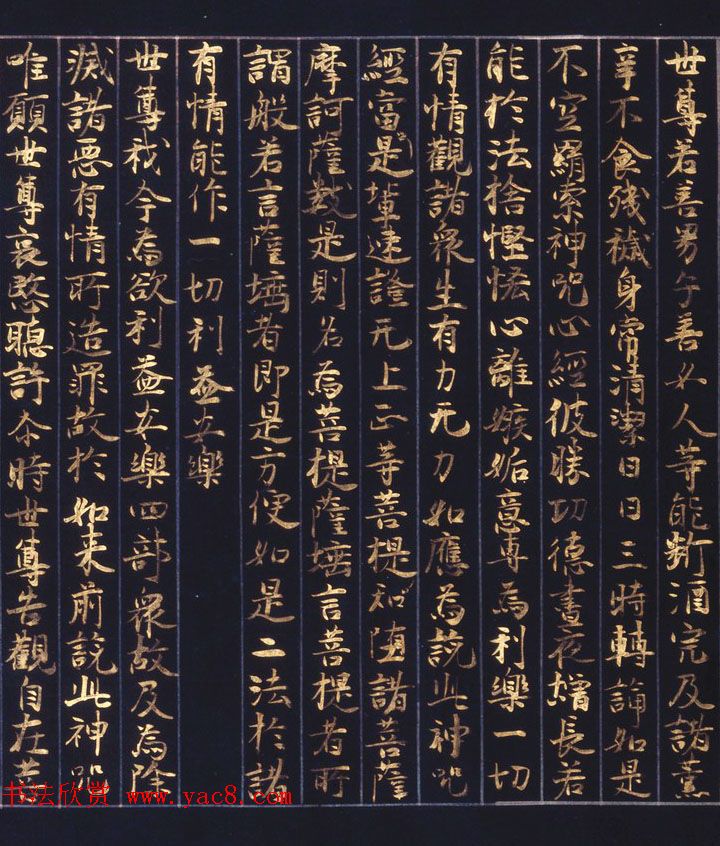 世尊若善男子善女人等能斷酒宍及諸薰
辛不食殘穢身常清潔日日三時轉誦如是
不空羂索神咒心經彼勝功德晝夜增長若
能於法捨慳悋心離嫉妬意專為利樂一切
有情觀諸眾生有力无力如應為說此神咒
經當是輩速證无上正等菩提知堕諸菩薩
摩訶薩數是則名為菩提薩埵言菩提者所
謂般若言薩埵者即是方便如是二法於諸
有情能作一切利益安樂
世尊我今為欲利益安樂四部眾故及為除
滅諸惡有情所造罪故於如来前說此神咒
唯願世尊哀愍聽許尒時世尊告觀自在菩
书法欣赏 www.yac8.com